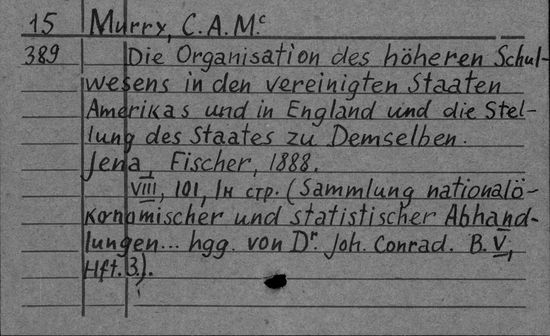 15 Murry, C. A. M.c
389 Die Organisation des höheren Schul-
wesens in den vereinigten Staaten
Amerikas und in England und die Stel-
lung des Staates zu Demselben.
Jena, Fischer, 1888.
VIII, 101, 1н стр. (Sammlung nationalö-
konomischer und statistischer Abhand-
lungen... hgg. von Dr. Joh. Conrad. B. V,
Hft. 3.).